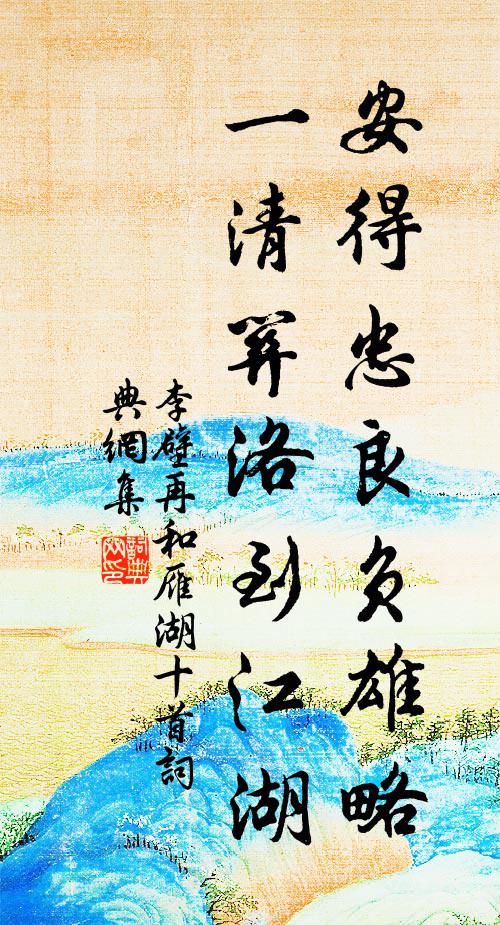 安得忠良負雄略
一清關洛到江湖
李壁再和雁湖十首詞
典網集
詞典網印